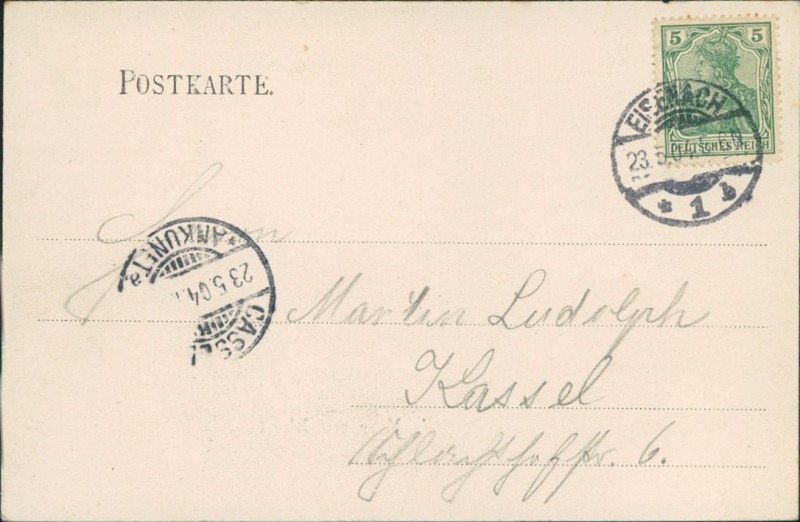 POSTKARTE.
5 5
DEUTSCHES REICH
EISENACH
23.5.04.
* 1 b
Herrn
ANKUNFT
23.5.04.
CASSEL
Martin Ludolph
Kassel
Schlachthofstr. 6.